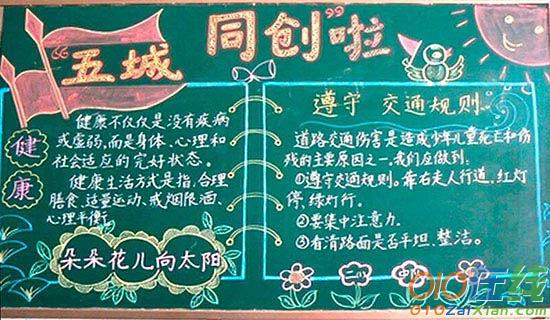 “五城同创”啦
健康
健康不仅仅是没有疾病
或虚弱,而是身体、心理和
社会适应的完好状态。
健康生活方式是指:合理
膳食、适量运动、戒烟限酒、
心理平衡。
朵朵花儿向太阳
遵守 交通规则。
道路交通伤害是造成少年儿童死亡和伤
残的主要原因之一。我们应做到:
①遵守交通规则。靠右走人行道,红灯
停,绿灯行。
②要集中注意力。
③看清路面是否平坦、整洁。
二(
010在线
010zaixian.com